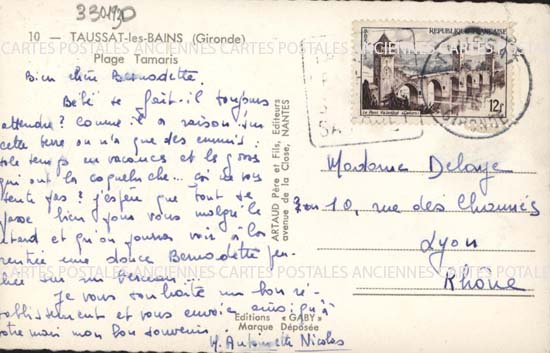 330190
10 — TAUSSAT-les-BAINS (Gironde)
Plage Tamaris
Bien chère Bernadette.
Bébé se fait-il toujours
attendre? Comme il a raison sur
cette terre on n'a que des ennuis:
sale temps en vacances et les goss
qui ont la coqueluche... ici
tente pas? j'espère que tout se
passe bien pour vous malgré le
retard et qu'on pourra voir à la
rentrée une douce Bernadette pen
chée sur un berceau...
Je vous souhaite un bon ré-
tablissement et vous envoie ainsi qu'à
votre mari mon bon souvenir.
M. Antoinette Nicolas
ARTAUD Père et Fils, Editeurs
avenue de la Close, NANTES
Editions « GABY »
Marque Déposée
REPUBLIQUE FRANÇAISE
Le Pont Valentré Cahors
12f
GIRONDE
Madame Delaye
10, rue des Charmés
Lyon
Rhône
CARTES POSTALES ANCIENNES CARTES POSTALES ANCIENNES CARTES POSTALES